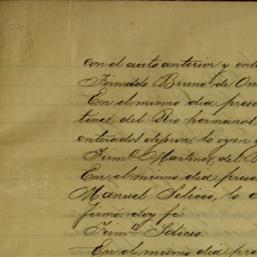 con el auto anterior y ent
Firmado Bruno de On
En el mismo dia prese
tinez del Oro hermanos,
enterados dijeron lo oyen y
Firmo Martinez del O
En el mismo dia prese
Manuel Silicio, lo o
firmó: doy fé
Firmo Silicio.
En el mismo dia pre